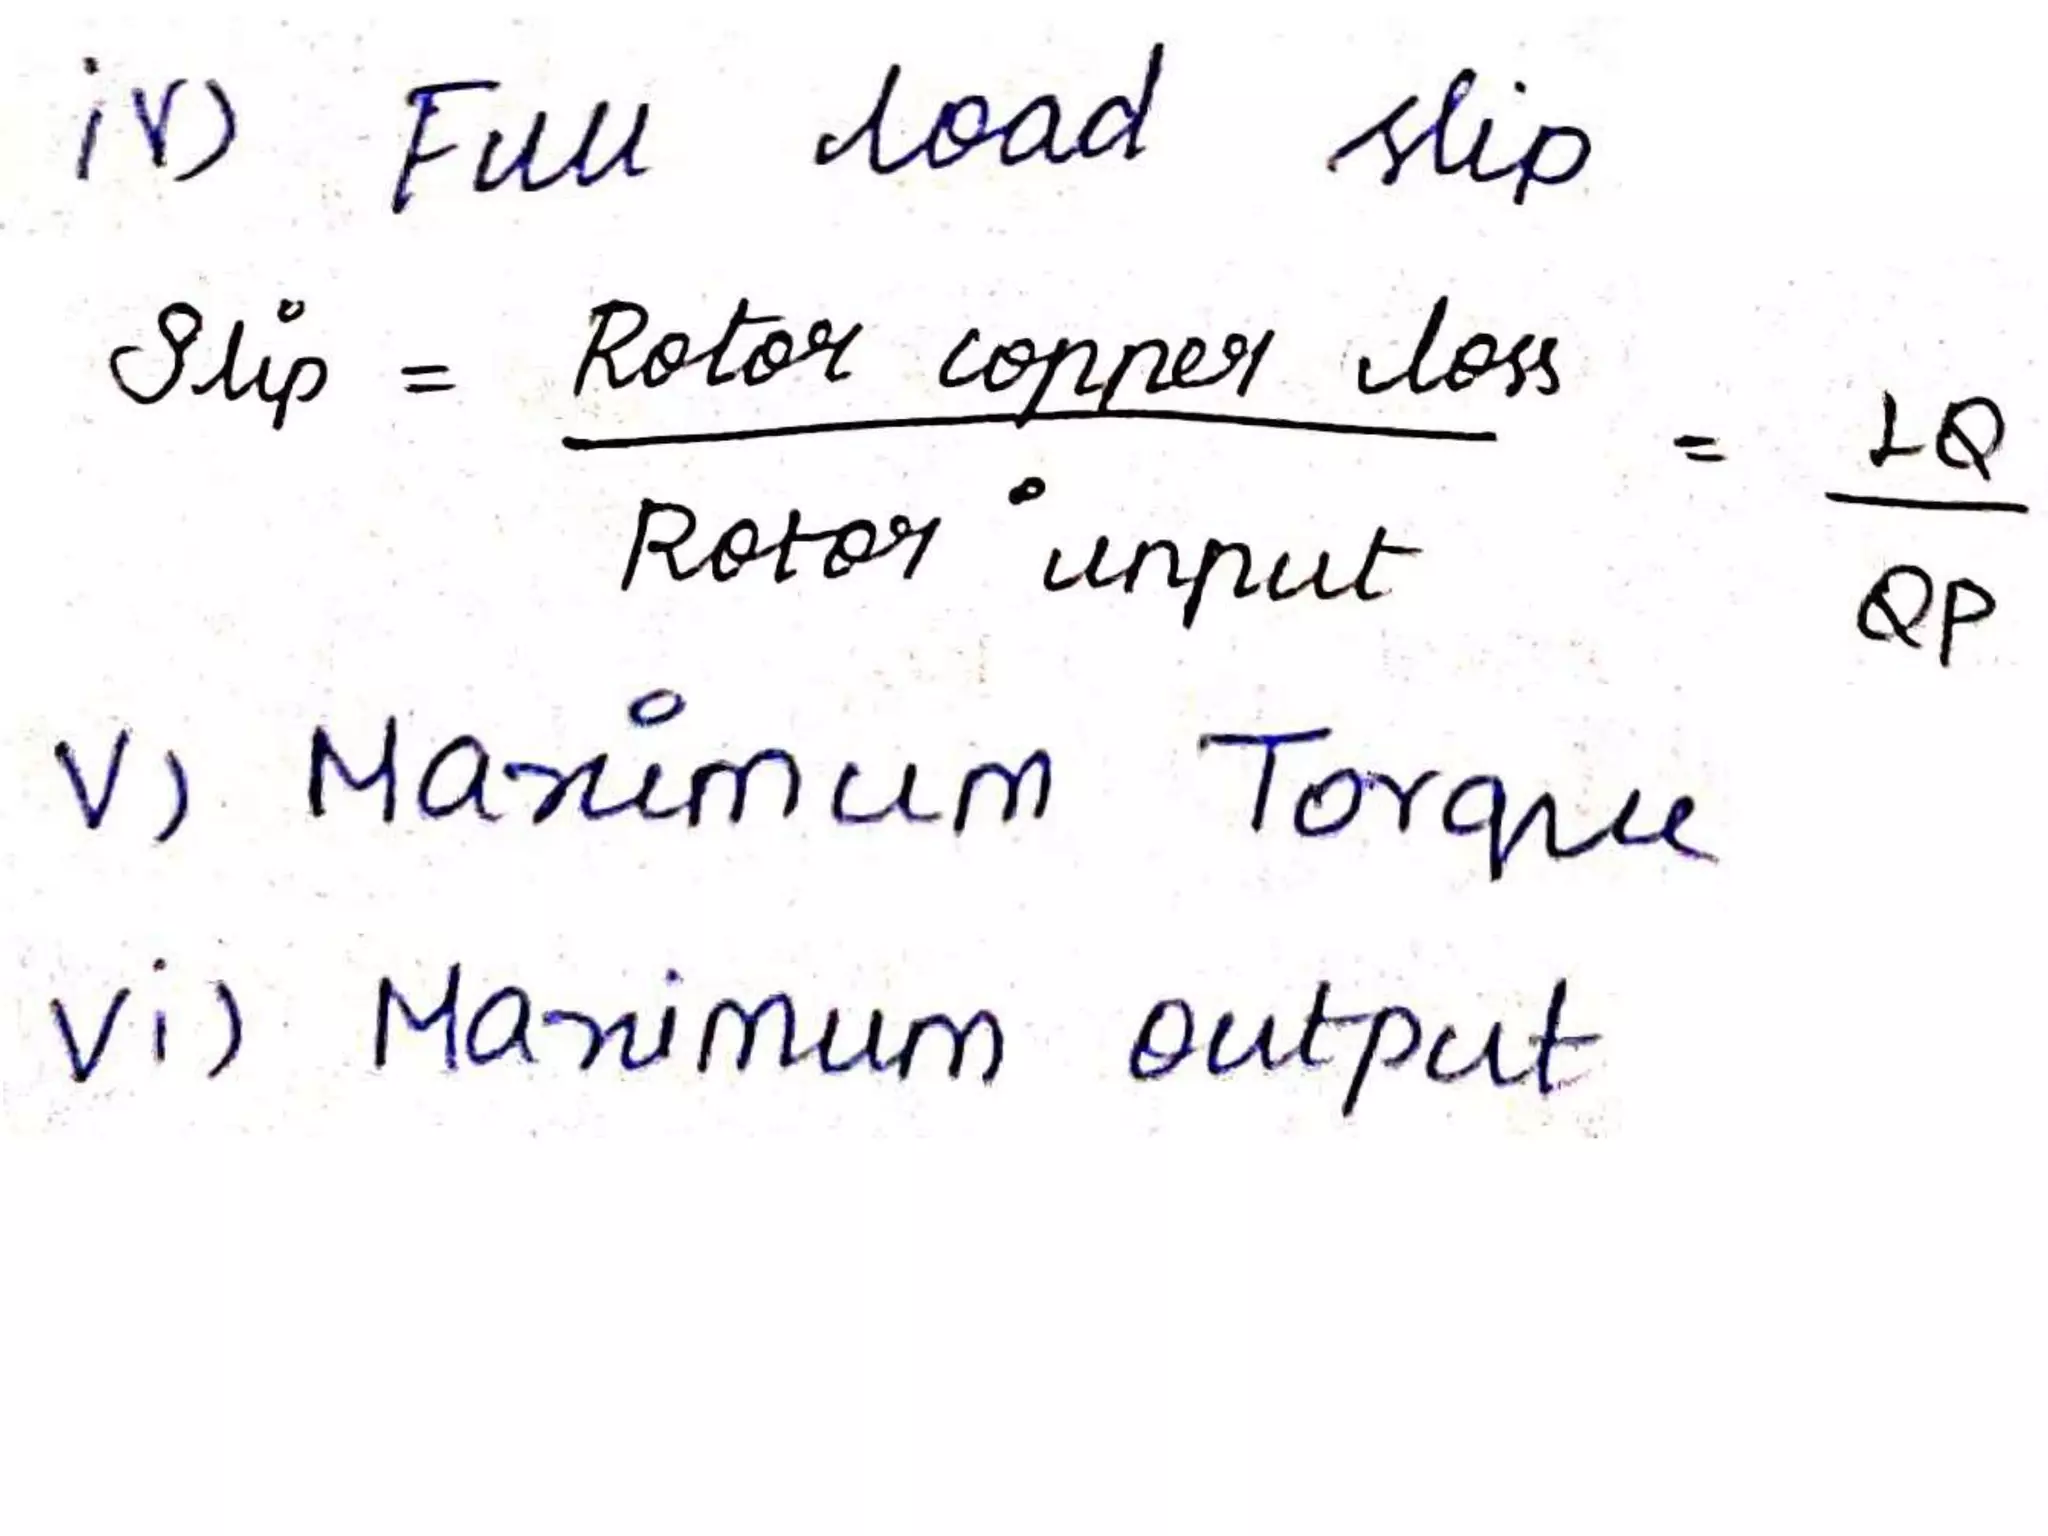 iv) Full load slip
Slip = Rotor copper loss / Rotor input = LQ / QP
v) Maximum Torque
vi) Maximum output